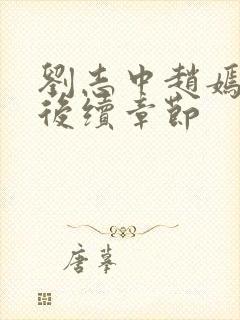 劉志中趙嫣
後續章節
唐墓